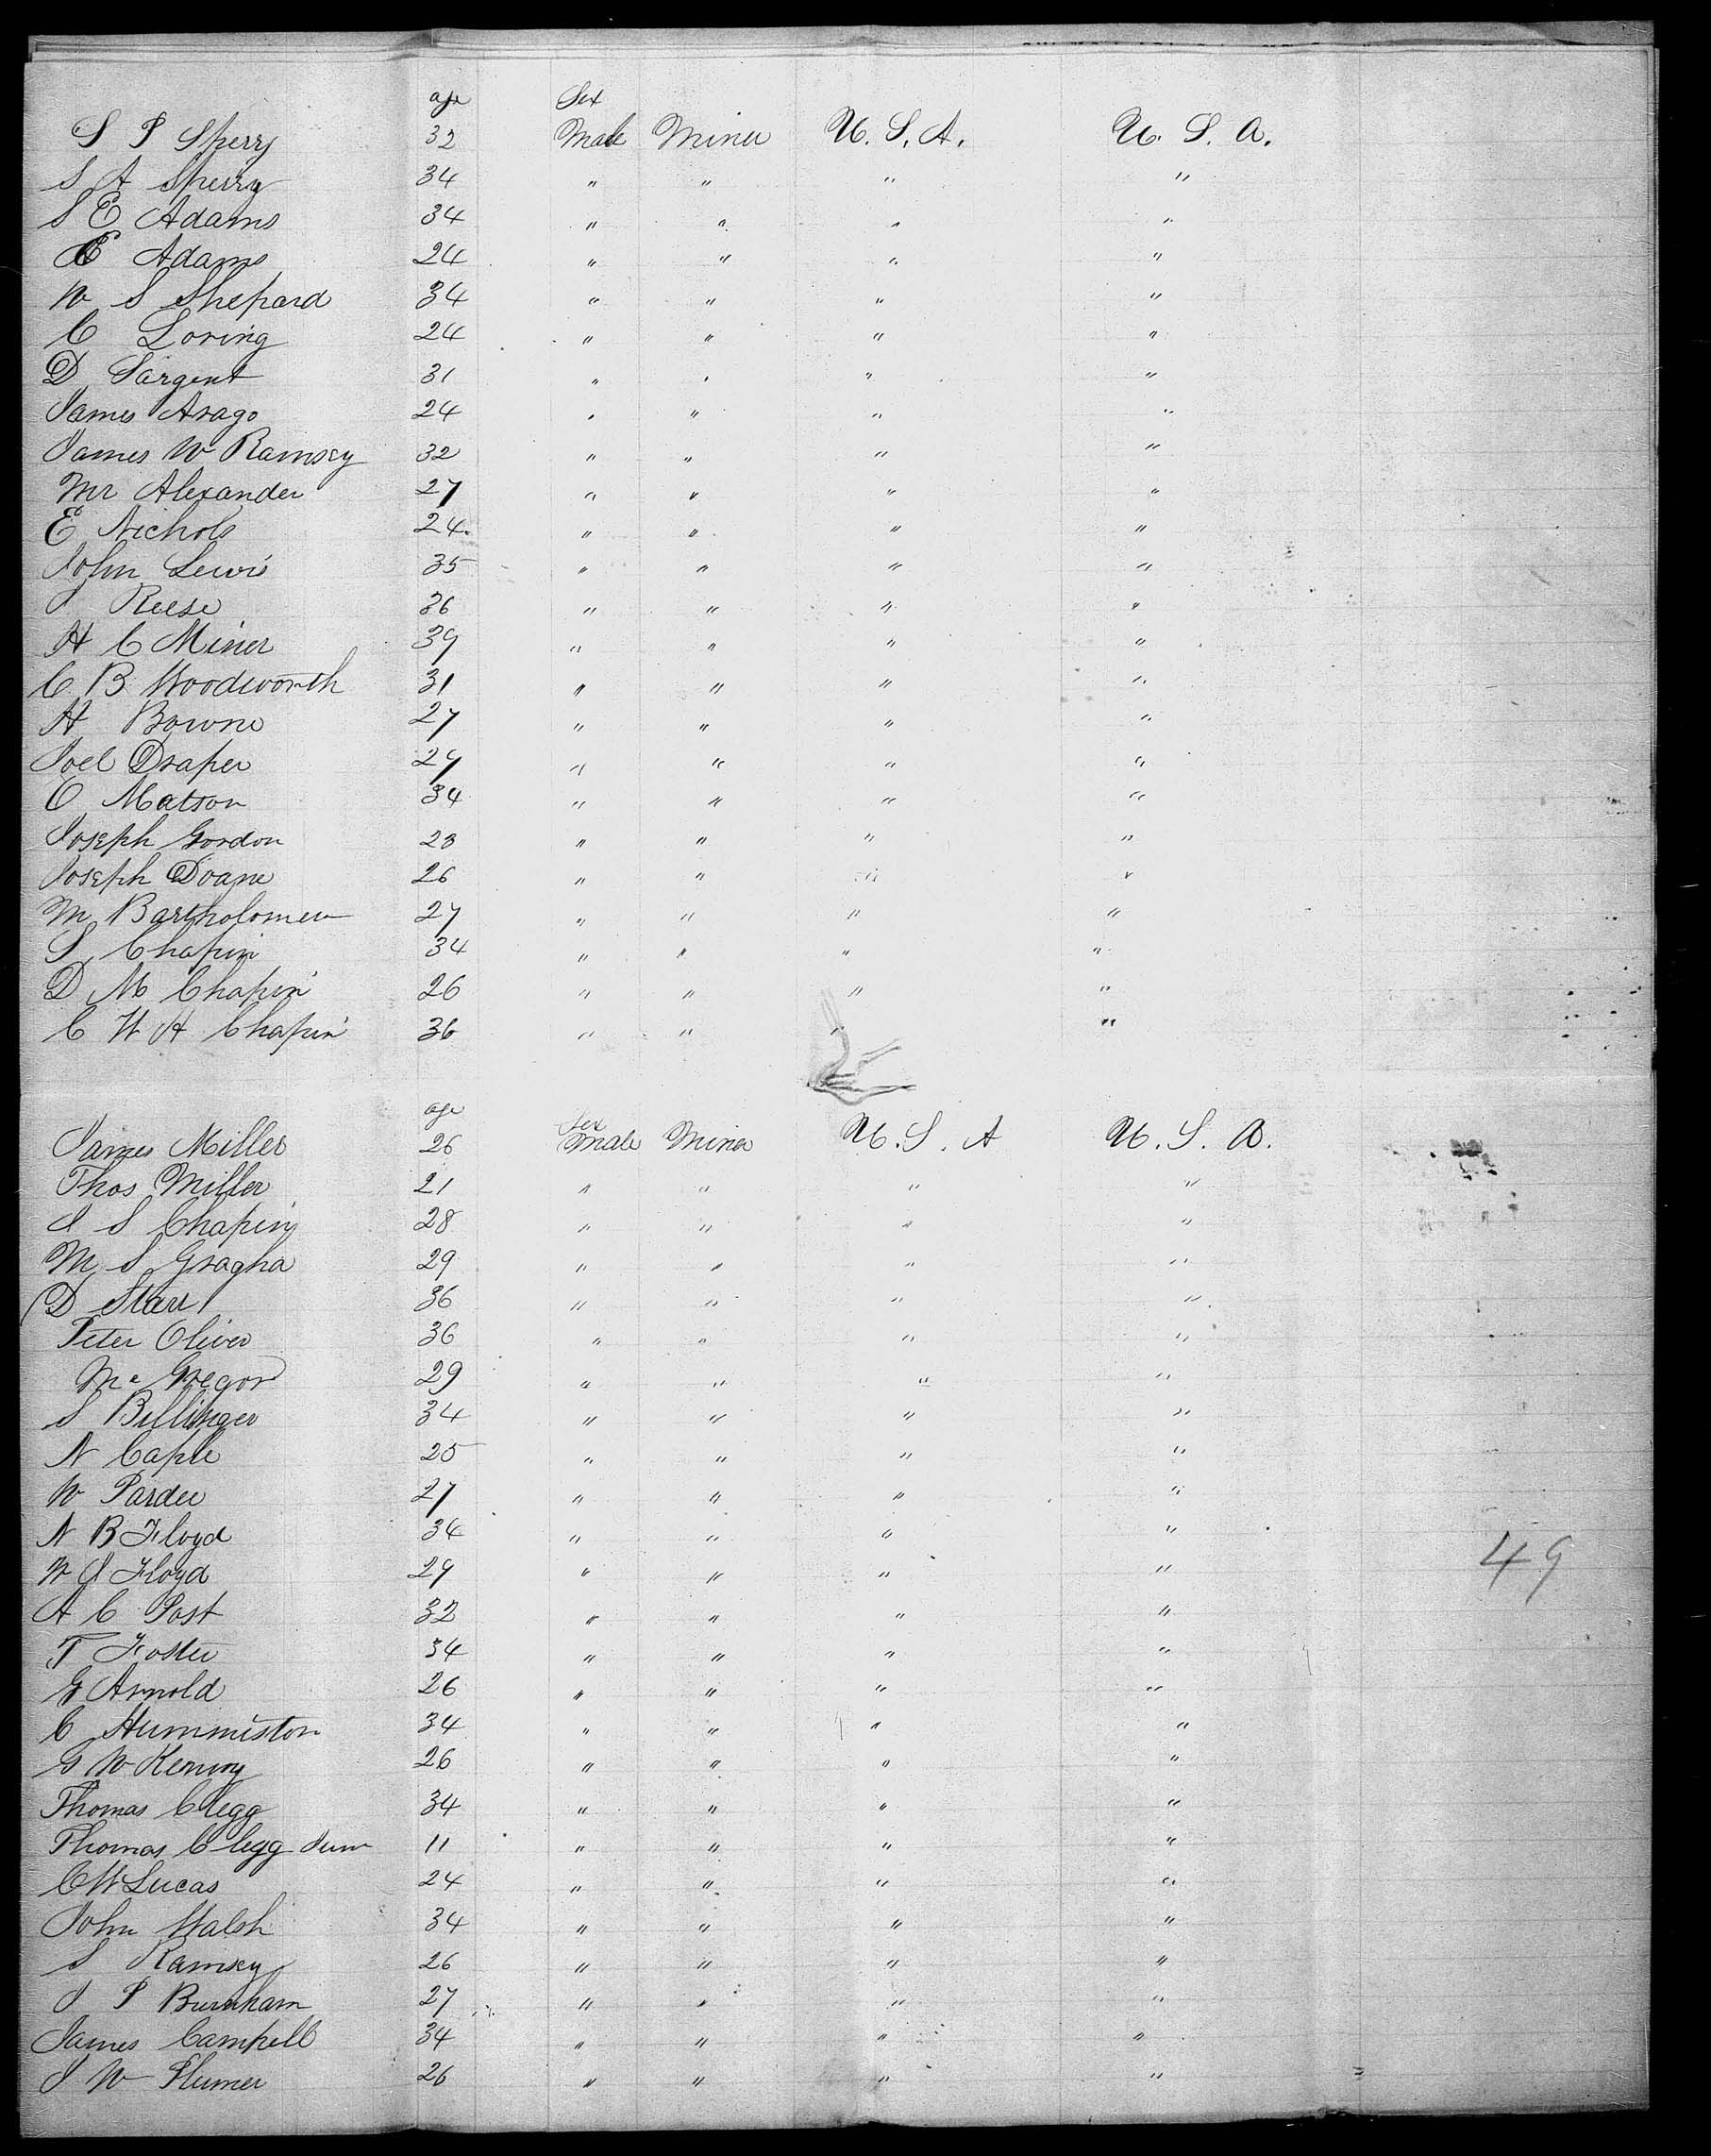 age Sex
S P Sperry 32 Male Miner U. S. A. U. S. A.
S A Sperry 34 " " " "
S E Adams 34 " " " "
E Adams 24 " " " "
W S Shepard 34 " " " "
C Loring 24 " " " "
D Sargent 31 " " " "
James Arago 24 " " " "
James W Ramsey 32 " " " "
Mr Alexander 27 " " " "
E Nichols 24 " " " "
John Lewis 35 " " " "
J Reese 36 " " " "
H C Miner 39 " " " "
C B Woodworth 31 " " " "
H Bowne 27 " " " "
Joel Draper 29 " " " "
O Matson 34 " " " "
Joseph Gordon 23 " " " "
Joseph Doane 26 " " " "
M Bartholomew 27 " " " "
S Chapin 34 " " " "
D M Chapin 26 " " " "
C W H Chapin 36 " " " "
age Sex
James Miller 26 Male Miner U. S. A U. S. A.
Thos Miller 21 " " " "
J S Chapin 28 " " " "
M S Gragha 29 " " " "
D Starr 36 " " " "
Peter Oliver 36 " " " "
Mc Gregor 29 " " " "
S Billinger 34 " " " "
N Caple 25 " " " "
W Pardee 27 " " " "
N B Floyd 34 " " " "
W J Floyd 29 " " " "
49
A C Post 32 " " " "
T Foster 34 " " " "
G Arnold 26 " " " "
C Hummiston 34 " " " "
G W 26 " " " "
Thomas Clegg 34 " " " "
Thomas Clegg Jun 11 " " " "
C W Lucas 24 " " " "
John Walsh 34 " " " "
S Ramsey 26 " " " "
J P Burnham 27 " " " "
James Campell 34 " " " "
J W Plumer 26 " " " "